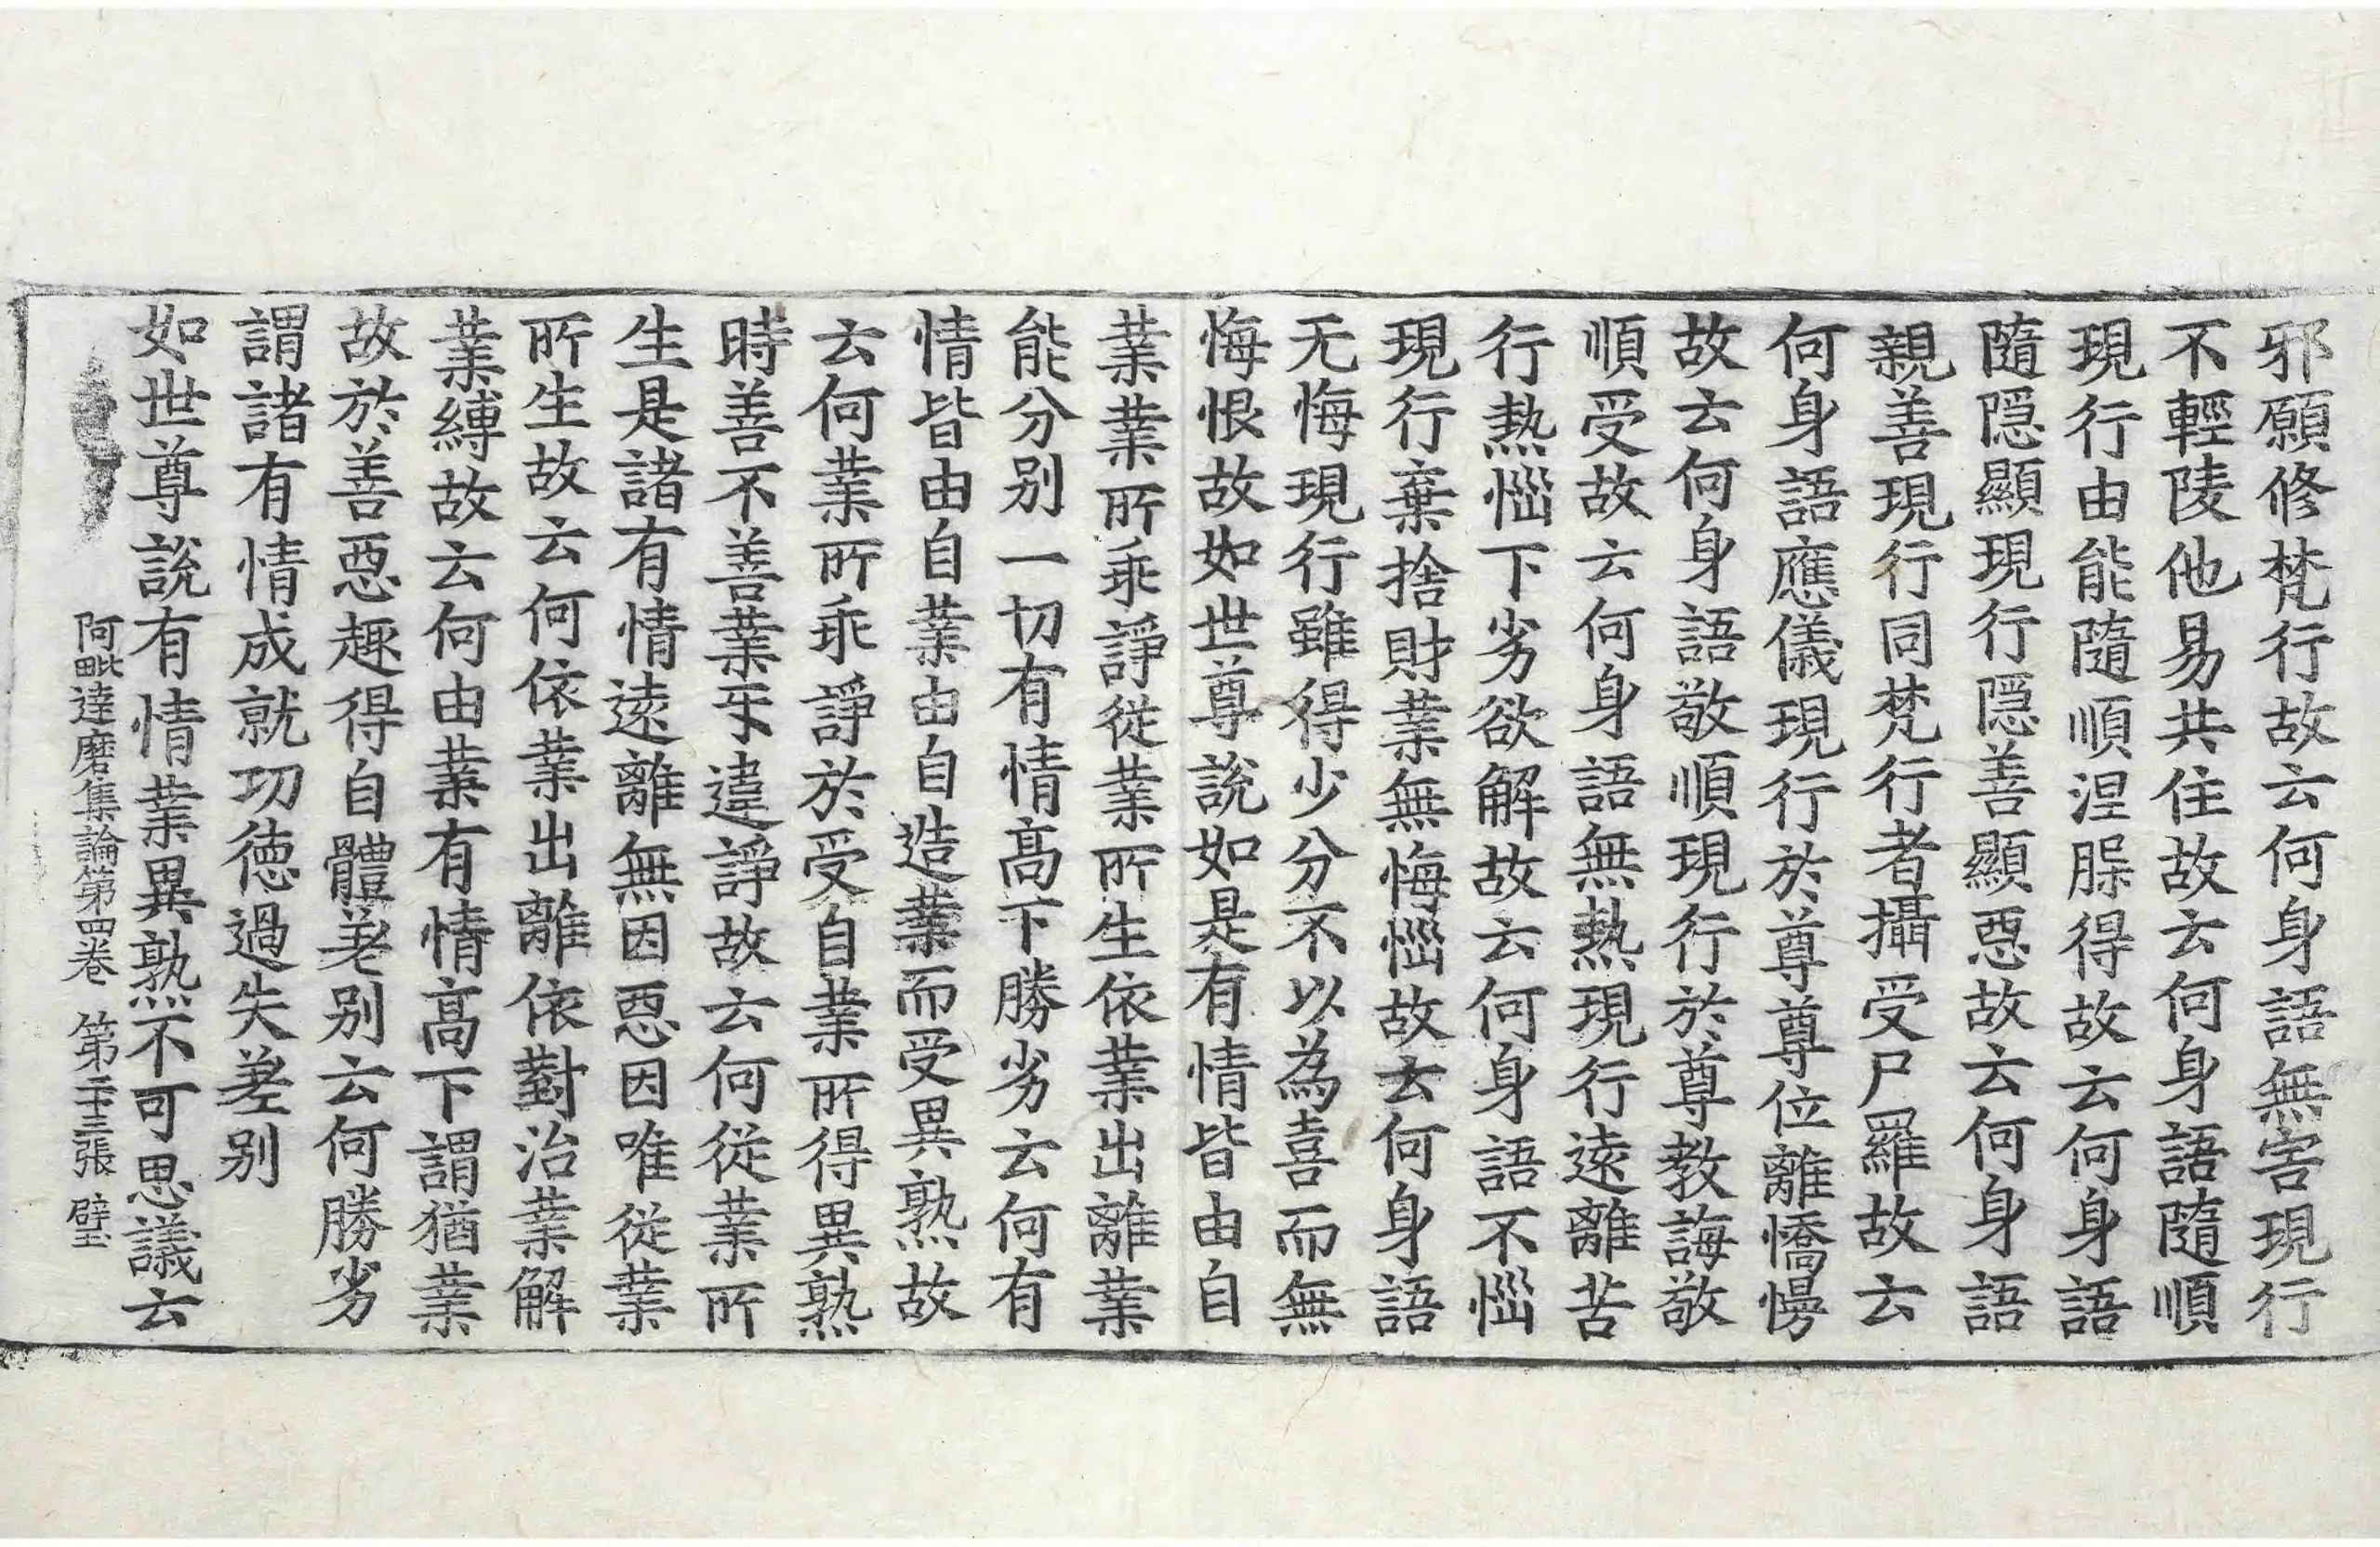 邪願修梵行故云何身語無害現行
不輕陵他易共住故云何身語隨順
現行由能隨順涅腺得故云何身語
隨隱顯現行隱善顯惡故云何身語
親善現行同梵行者攝受尸羅故云
何身語應儀現行於尊尊位離憍慢
故云何身語敬順現行於尊教誨敬
順受故云何身語無熱現行遠離苦
行熱惱下劣欲解故云何身語不惱
現行棄捨財業無悔惱故云何身語
无悔現行雖得少分不以為喜而無
悔恨故如世尊說如是有情皆由自
業業所乖諍從業所生依業出離業
能分別一切有情高下勝劣云何有
情皆由自業由自造業而受異熟故
云何業所乖諍於受自業所得異熟
時善不善業互違諍故云何從業所
生是諸有情遠離無因惡因唯從業
所生故云何依業出離依對治業解
業縛故云何由業有情高下謂猶業
故於善惡趣得自體差別云何勝劣
謂諸有情成就功德過失差別
如世尊說有情業異熟不可思議云
阿毗達磨集論第四卷 第二十三張 璧